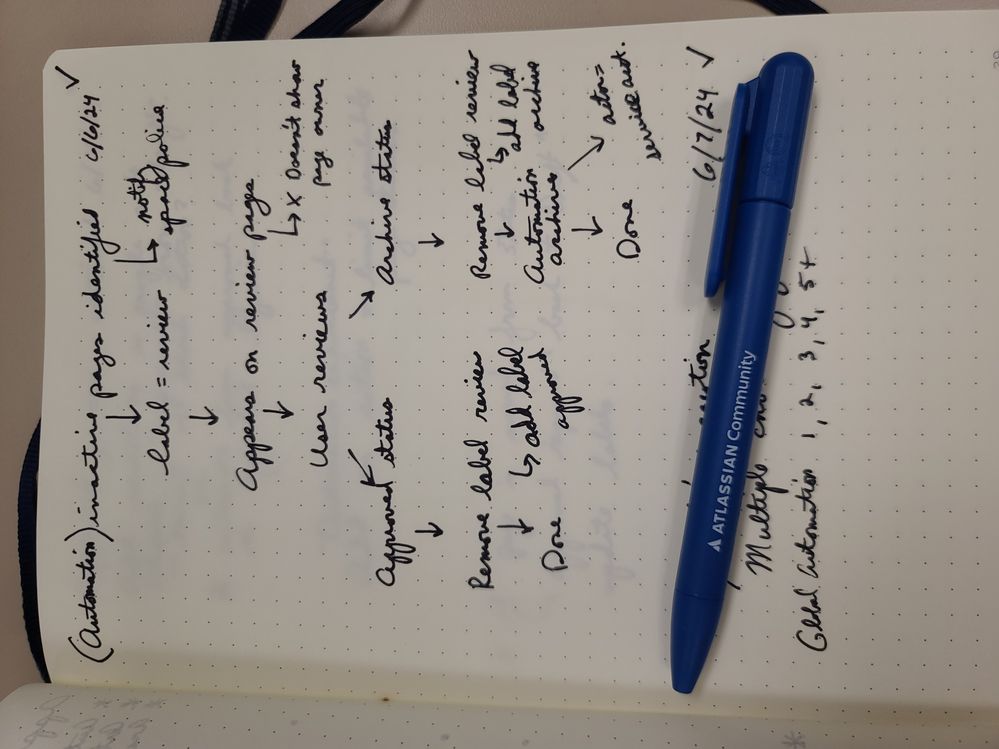 (Automation) inactive pages identified 6/6/24 ✓
label = review
notify
space police
Appears on review pages
x Doesn't show
page owner
User reviews
Approved status
Archive status
Remove label review
Remove label review
add label
approved
add label
archive
Done
Automation
archives
Done
actor=
service acct.
6/7/24 ✓
ATLASSIAN Community
Multiple
Global Automation 1, 2, 3, 4, 5+